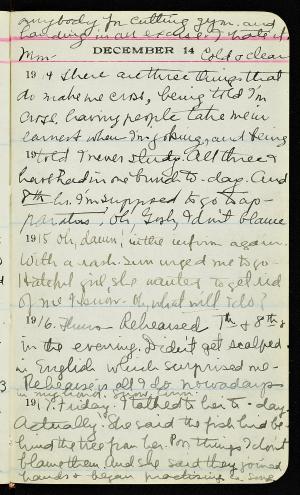 anybody for cutting gym. and
handing in an excuse. I hate it
Mon- DECEMBER 14 Cold & clear
1914 There are three things that
do make me cross, being told I'm
cross, having people take me in
earnest when I'm joking, and being
told I never study. All three I
have had in one bunch to-day. And
8th hr. I'm supposed to go to ap-
paratus, Oh, Gosh, I don't blame
1915 Oh, damn, in the infirm again.
With a rash. Sum urged me to go-
Hateful girl, she wanted to get rid
of me I know- Oh, what will I do?
1916. Thurs- Rehearsed 7th & 8th &
in the evening. Didn't get scalped
in English which surprised me-
Rehearse is all I do nowadays
in my hand.
1917. Friday. I talked to her to-day
Actually. She said the fish hid be-
hind the tree from her. Poor things I don't
blame them. And she said they joined
hands & began practising in some